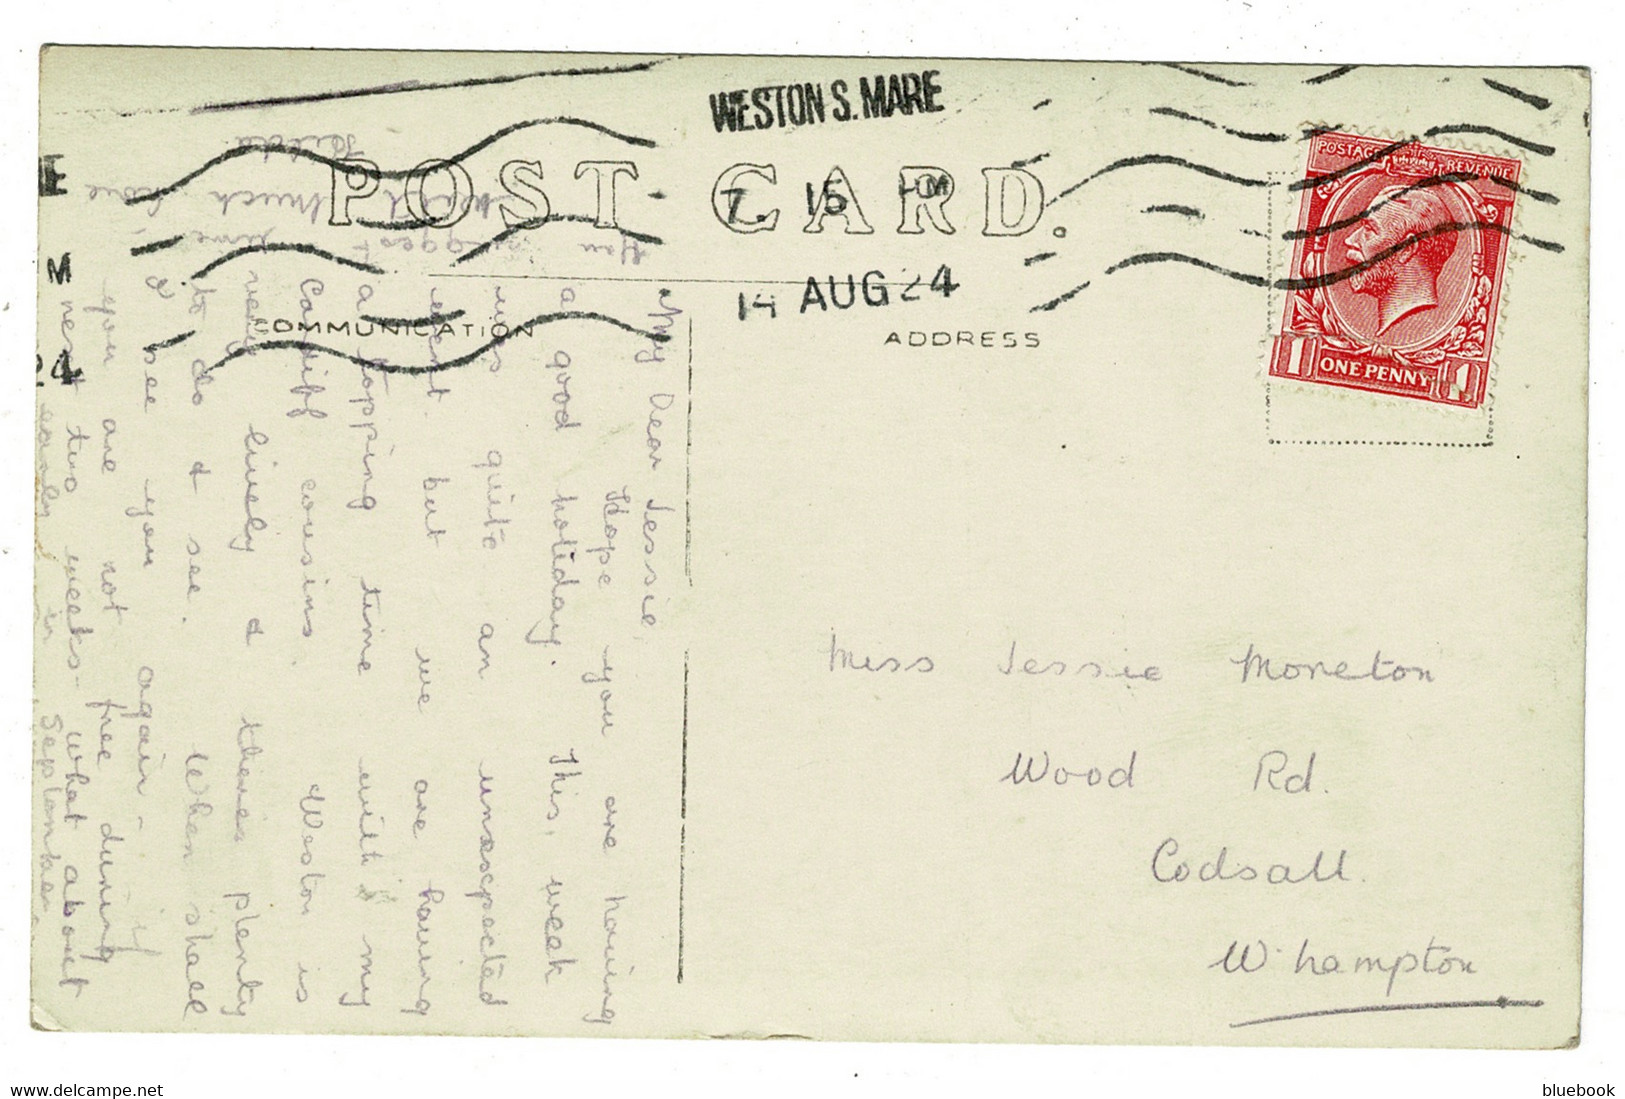 WESTON S. MARE
POST CARD.
7. 15 PM
14 AUG 24
COMMUNICATION
ADDRESS
POSTAGE REVENUE
1 ONE PENNY 1
E
M
24
My Dear Jessie,
Hope you are having
a good holiday. This, week
was quite an unexpected
event. but we are having
a topping time with my
Cardiff cousins. Weston is
very lively & theres plenty
to do & see. When shall
I see you again - if
you are not free during
next two weeks - what about
early in September.
much love
Miss Jessie Moreton
Wood Rd.
Codsall.
W'hampton
bluebook